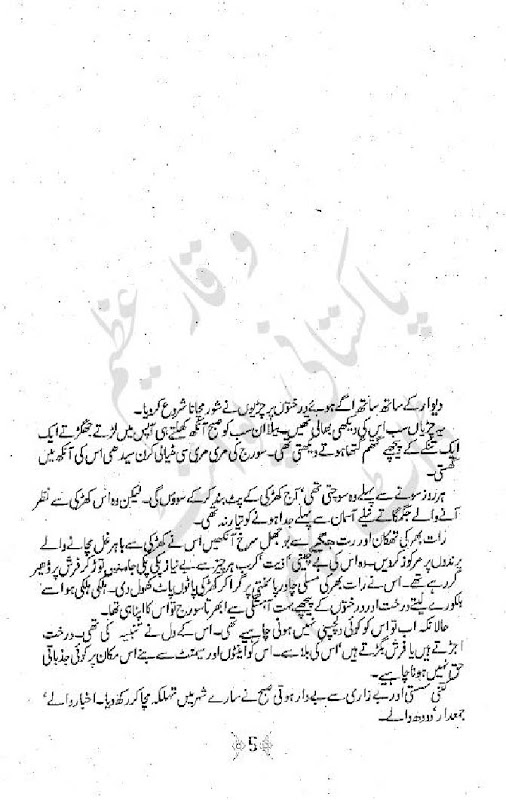 دیوار کے ساتھ ساتھ اگے ہوئے درختوں پر چڑیوں نے شور مچانا شروع کر دیا۔
یہ چڑیاں سب اس کی دیکھی بھالی تھیں۔ بیلا ان سب کو صبح آنکھ کھلتے ہی آپس میں لڑتے جھگڑتے ایک
ایک تنکے کے پیچھے گتھم گتھا ہوتے دیکھتی تھی۔ سورج کی مری مری سی ٹمیالی کرن سیدھی اس کی آنکھ میں
گھستی۔
ہر روز سونے سے پہلے وہ سوچتی تھی‘ آج کھڑکی کے پٹ بند کر کے سوؤں گی۔ لیکن وہ اس کھڑکی سے نظر
آنے والے جگمگاتے نیلے آسمان سے پہلے جدا ہونے کو تیار نہ تھی۔
رات بھر کی تھکان اور رت جگے سے بوجھل سرخ آنکھیں اس نے کھڑکی سے باہر غل مچانے والے
پرندوں پر مرکوز کر دیں۔ وہ اس کی بے چینی‘ اذیت‘ کرب ہر چیز سے بے نیاز پکی پکی جامنیں توڑ کر فرش پر ڈھیر
کر رہے تھے۔ اس نے رات بھر کی مسلی چادر پائنتی پر گرا کر کھڑکی پاٹوں پاٹ کھول دی۔ ہلکی ہلکی ہوا سے‘
ہلکورے لیتے درخت اور درختوں کے پیچھے بہت آہستگی سے ابھرتا سورج تو اس کا اپنا ہی تھا۔
حالانکہ اب تو اس کو کوئی دلچسپی نہیں ہونی چاہیے تھی۔ اس کے دل نے تنبیہہ کی تھی۔ درخت
اجڑتے ہیں یا فرش بگڑتے ہیں‘ اس کی بلا سے۔ اس کو اینٹوں اور سیمنٹ سے بنے اس مکان پر کوئی جذباتی
حق نہیں ہونا چاہیے۔
کتنی سستی اور بے زاری سے بیدار ہوتی صبح نے سارے شہر میں تہلکہ مچا کر رکھ دیا۔ اخبار والے‘
جمعدار‘ دودھ والے۔
5
وقار عظیم
پاکستانی